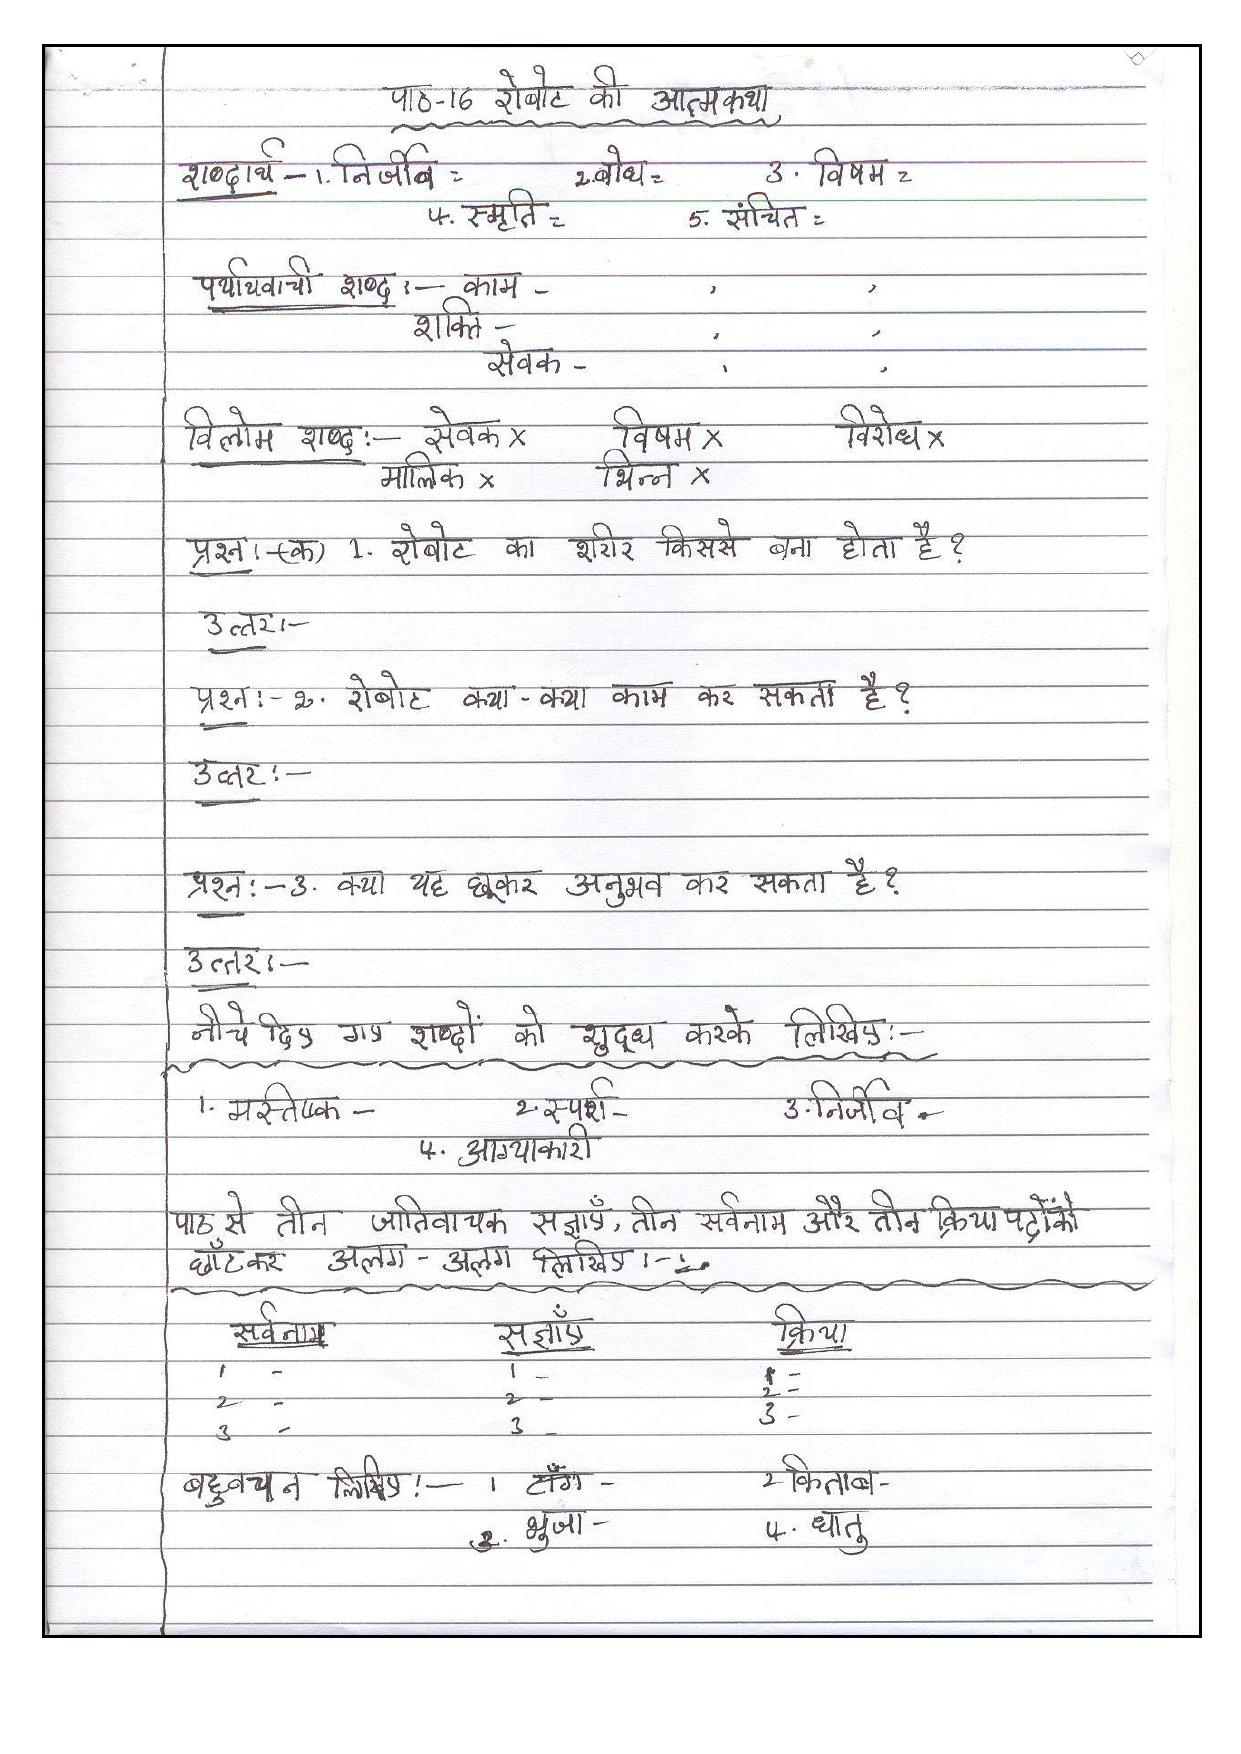 पाठ-16 रोबोट की आत्मकथा
शब्दार्थ - 1. निर्जीव = 2. बोध = 3. विषम =
4. स्मृति = 5. संचित =
पर्यायवाची शब्द :- काम - , ,
शक्ति - , ,
सेवक - , ,
विलोम शब्द :- सेवक x विषम x विरोध x
मालिक x भिन्न x
प्रश्न :- (क) 1. रोबोट का शरीर किससे बना होता है ?
उत्तर :-
प्रश्न :- 2. रोबोट क्या - क्या काम कर सकता है ?
उत्तर :-
प्रश्न :- 3. क्या यह छूकर अनुभव कर सकता है ?
उत्तर :-
नीचे दिए गए शब्दों को शुद्ध करके लिखिए :-
1. मस्तिष्क - 2. स्पर्श - 3. निर्जीव -
4. आग्याकारी
पाठ से तीन जातिवाचक सज्ञाएँ, तीन सर्वनाम और तीन क्रिया पदों को
छाँटकर अलग - अलग लिखिए :-
सर्वनाम सज्ञाएँ क्रिया
1 - 1 - 1 -
2 - 2 - 2 -
3 - 3 - 3 -
बहुवचन लिखिए :- 1 टाँग - 2 किताब -
3. भुजा - 4. धातु